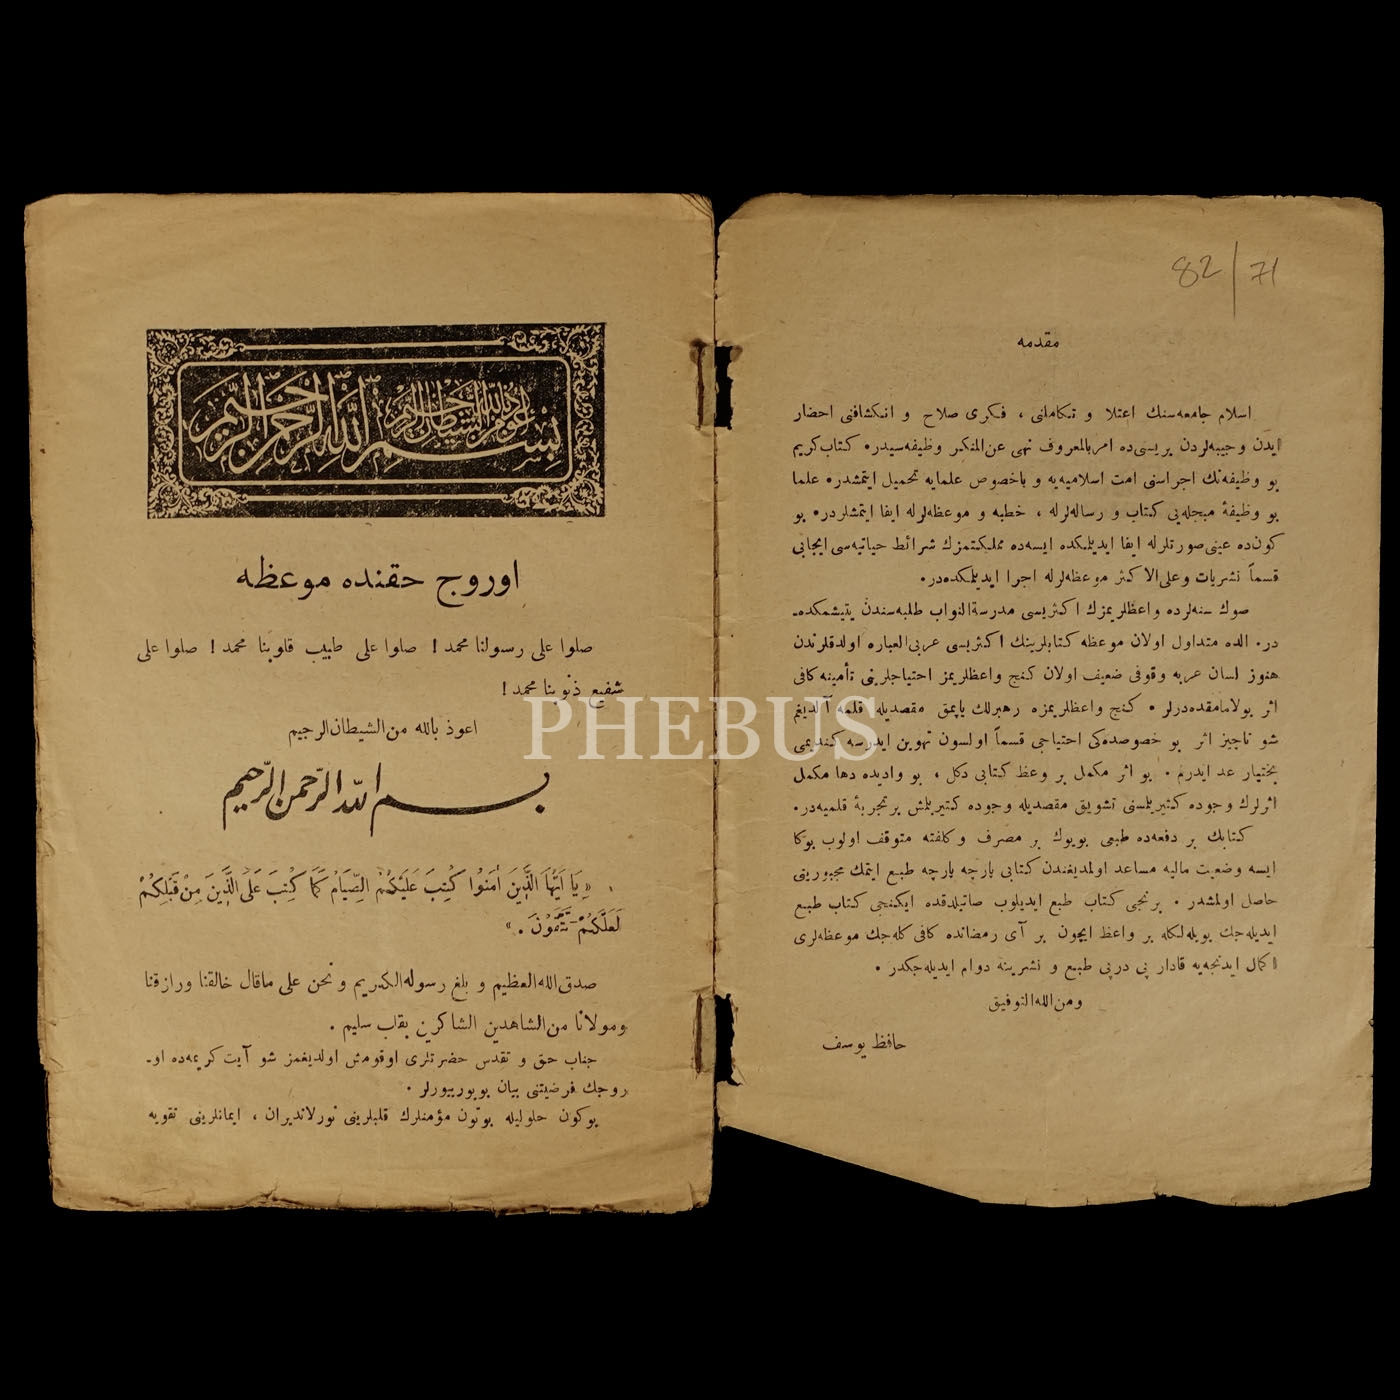 82/71
مقدمه
اسلام جامعه‌سنك اعتلا و تكاملنى ، فكرى صلاح و انكشافنى احضار
ايدن وجيبه‌لردن بريسى‌ده امر بالمعروف نهى عن المنكر وظيفه‌سيدر. كتاب كريم
بو وظيفه‌نك اجراسنى امت اسلاميه‌يه و باخصوص علمايه تحميل ايتمشدر. علما
بو وظيفهٔ مبجله‌يى كتاب و رساله‌لرله ، خطبه و موعظه‌لرله ايفا ايتمشلردر. بو
كون‌ده عينى صورتلرله ايفا ايديلمكده ايسه‌ده مملكتمزك شرائط حياتيه‌سى ايجابى
قسماً نشريات وعلى الاكثر موعظه‌لرله اجرا ايديلمكده‌در.
صوك سنه‌لرده واعظلريمزك اكثريسى مدرسة النواب طلبه‌سندن يتيشمكده‌ـ
در. الده متداول اولان موعظه كتابلرينك اكثريسى عربى العباره اولدقلرندن
هنوز لسان عربه وقوفى ضعيف اولان كنج واعظلريمز احتياجلرينى تأمينه كافى
اثر بولامامقده‌درلر. كنج واعظلريمزه رهبرلك ياپمق مقصديله قلمه آلديغم
شو ناچيز اثر بو خصوصده‌كى احتياجى قسماً اولسون تهوين ايدرسه كنديمى
بختيار عد ايدرم. بو اثر مكمل بر وعظ كتابى دكل ، بو واديده دها مكمل
اثرلرك وجوده كتيريلمسنى تشويق مقصديله وجوده كتيريلمش بر تجربهٔ قلميه‌در.
كتابك بر دفعه‌ده طبعى بويوك بر مصرف و كلفته متوقف اولوب بوكا
ايسه وضعيت ماليه مساعد اولمديغندن كتابى پارچه پارچه طبع ايتمك مجبوريتى
حاصل اولمشدر . برنجى كتاب طبع ايديلوب صاتيلدقده ايكنجى كتاب طبع
ايديله‌جك بويله‌لكله بر واعظ ايچون بر آى رمضانده كافى كله‌جك موعظه‌لرى
اكمال ايدنجه‌يه قادار پى درپى طبع و نشرينه دوام ايديله‌جكدر .
ومن الله التوفيق
حافظ يوسف
اعوذ بالله من الشيطان الرجيم
بسم الله الرحمن الرحيم
اوروج حقنده موعظه
صلوا على رسولنا محمد ! صلوا على طبيب قلوبنا محمد ! صلوا على
شفيع ذنوبنا محمد !
اعوذ بالله من الشيطان الرجيم
بسم الله الرّحمن الرّحيم
« يَا اَيُّهَا الَّذِينَ اٰمَنُوا كُتِبَ عَلَيْكُمُ الصِّيَامُ كَمَا كُتِبَ عَلَى الَّذِينَ مِنْ قَبْلِكُمْ
لَعَلَّكُمْ تَتَّقُونَ . »
صدق الله العظيم و بلغ رسوله الكريم و نحن على ماقال خالقنا ورازقنا
ومولانا من الشاهدين الشاكرين بقلب سليم .
جناب حق و تقدس حضرتلرى اوقومش اولديغمز شو آيت كريمه‌ده اوـ
روجك فرضيتنى بيان بويوريورلر .
بوكون حلوليله بوتون مؤمنلرك قلبلرينى نورلانديران ، ايمانلرينى تقويه
PHEBUS